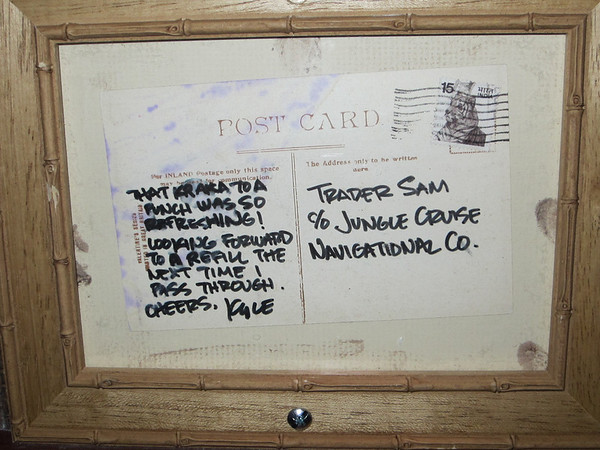 POST CARD
15
INDIA
For INLAND Postage only this space
may
communication.
The Address only to be written
here.
THAT KRAKATOA
PUNCH WAS SO
REFRESHING!
LOOKING FORWARD
TO A REFILL THE
NEXT TIME I
PASS THROUGH.
CHEERS. KYLE
TRADER SAM
c/o JUNGLE CRUISE
NAVIGATIONAL CO.